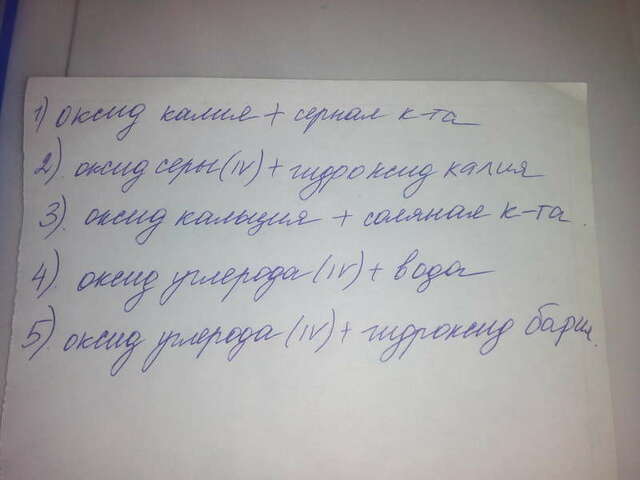 1) оксид калия + серная к-та
2). оксид серы (IV) + гидроксид калия
3). оксид кальция + соляная к-та.
4). оксид углерода (IV) + вода
5). оксид углерода (IV) + гидроксид бария.